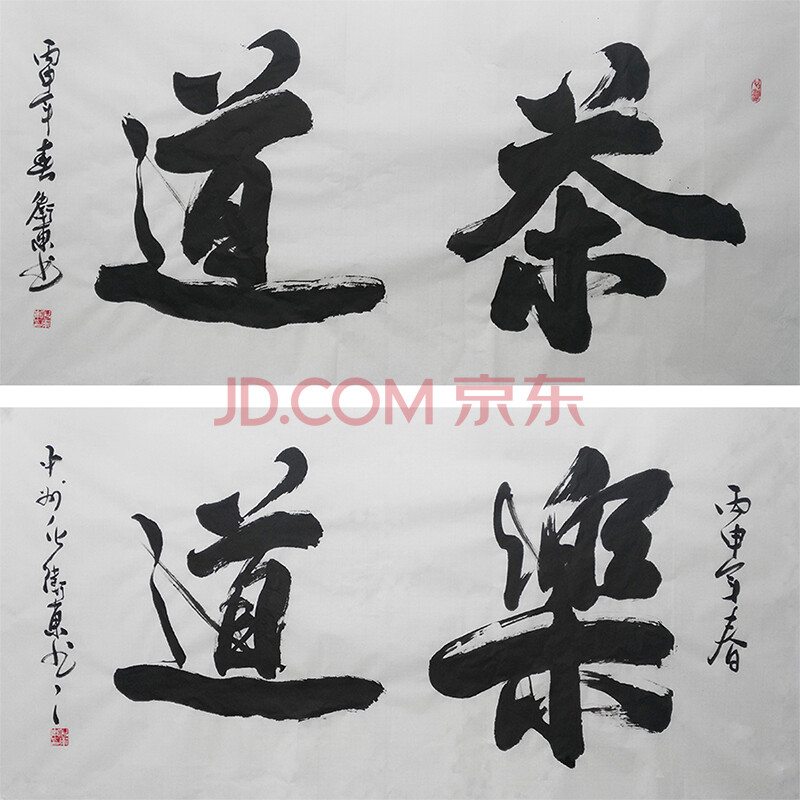 茶道
丙申年春衛東书
JD.COM 京东
丙申年春
樂道
中州衛東书